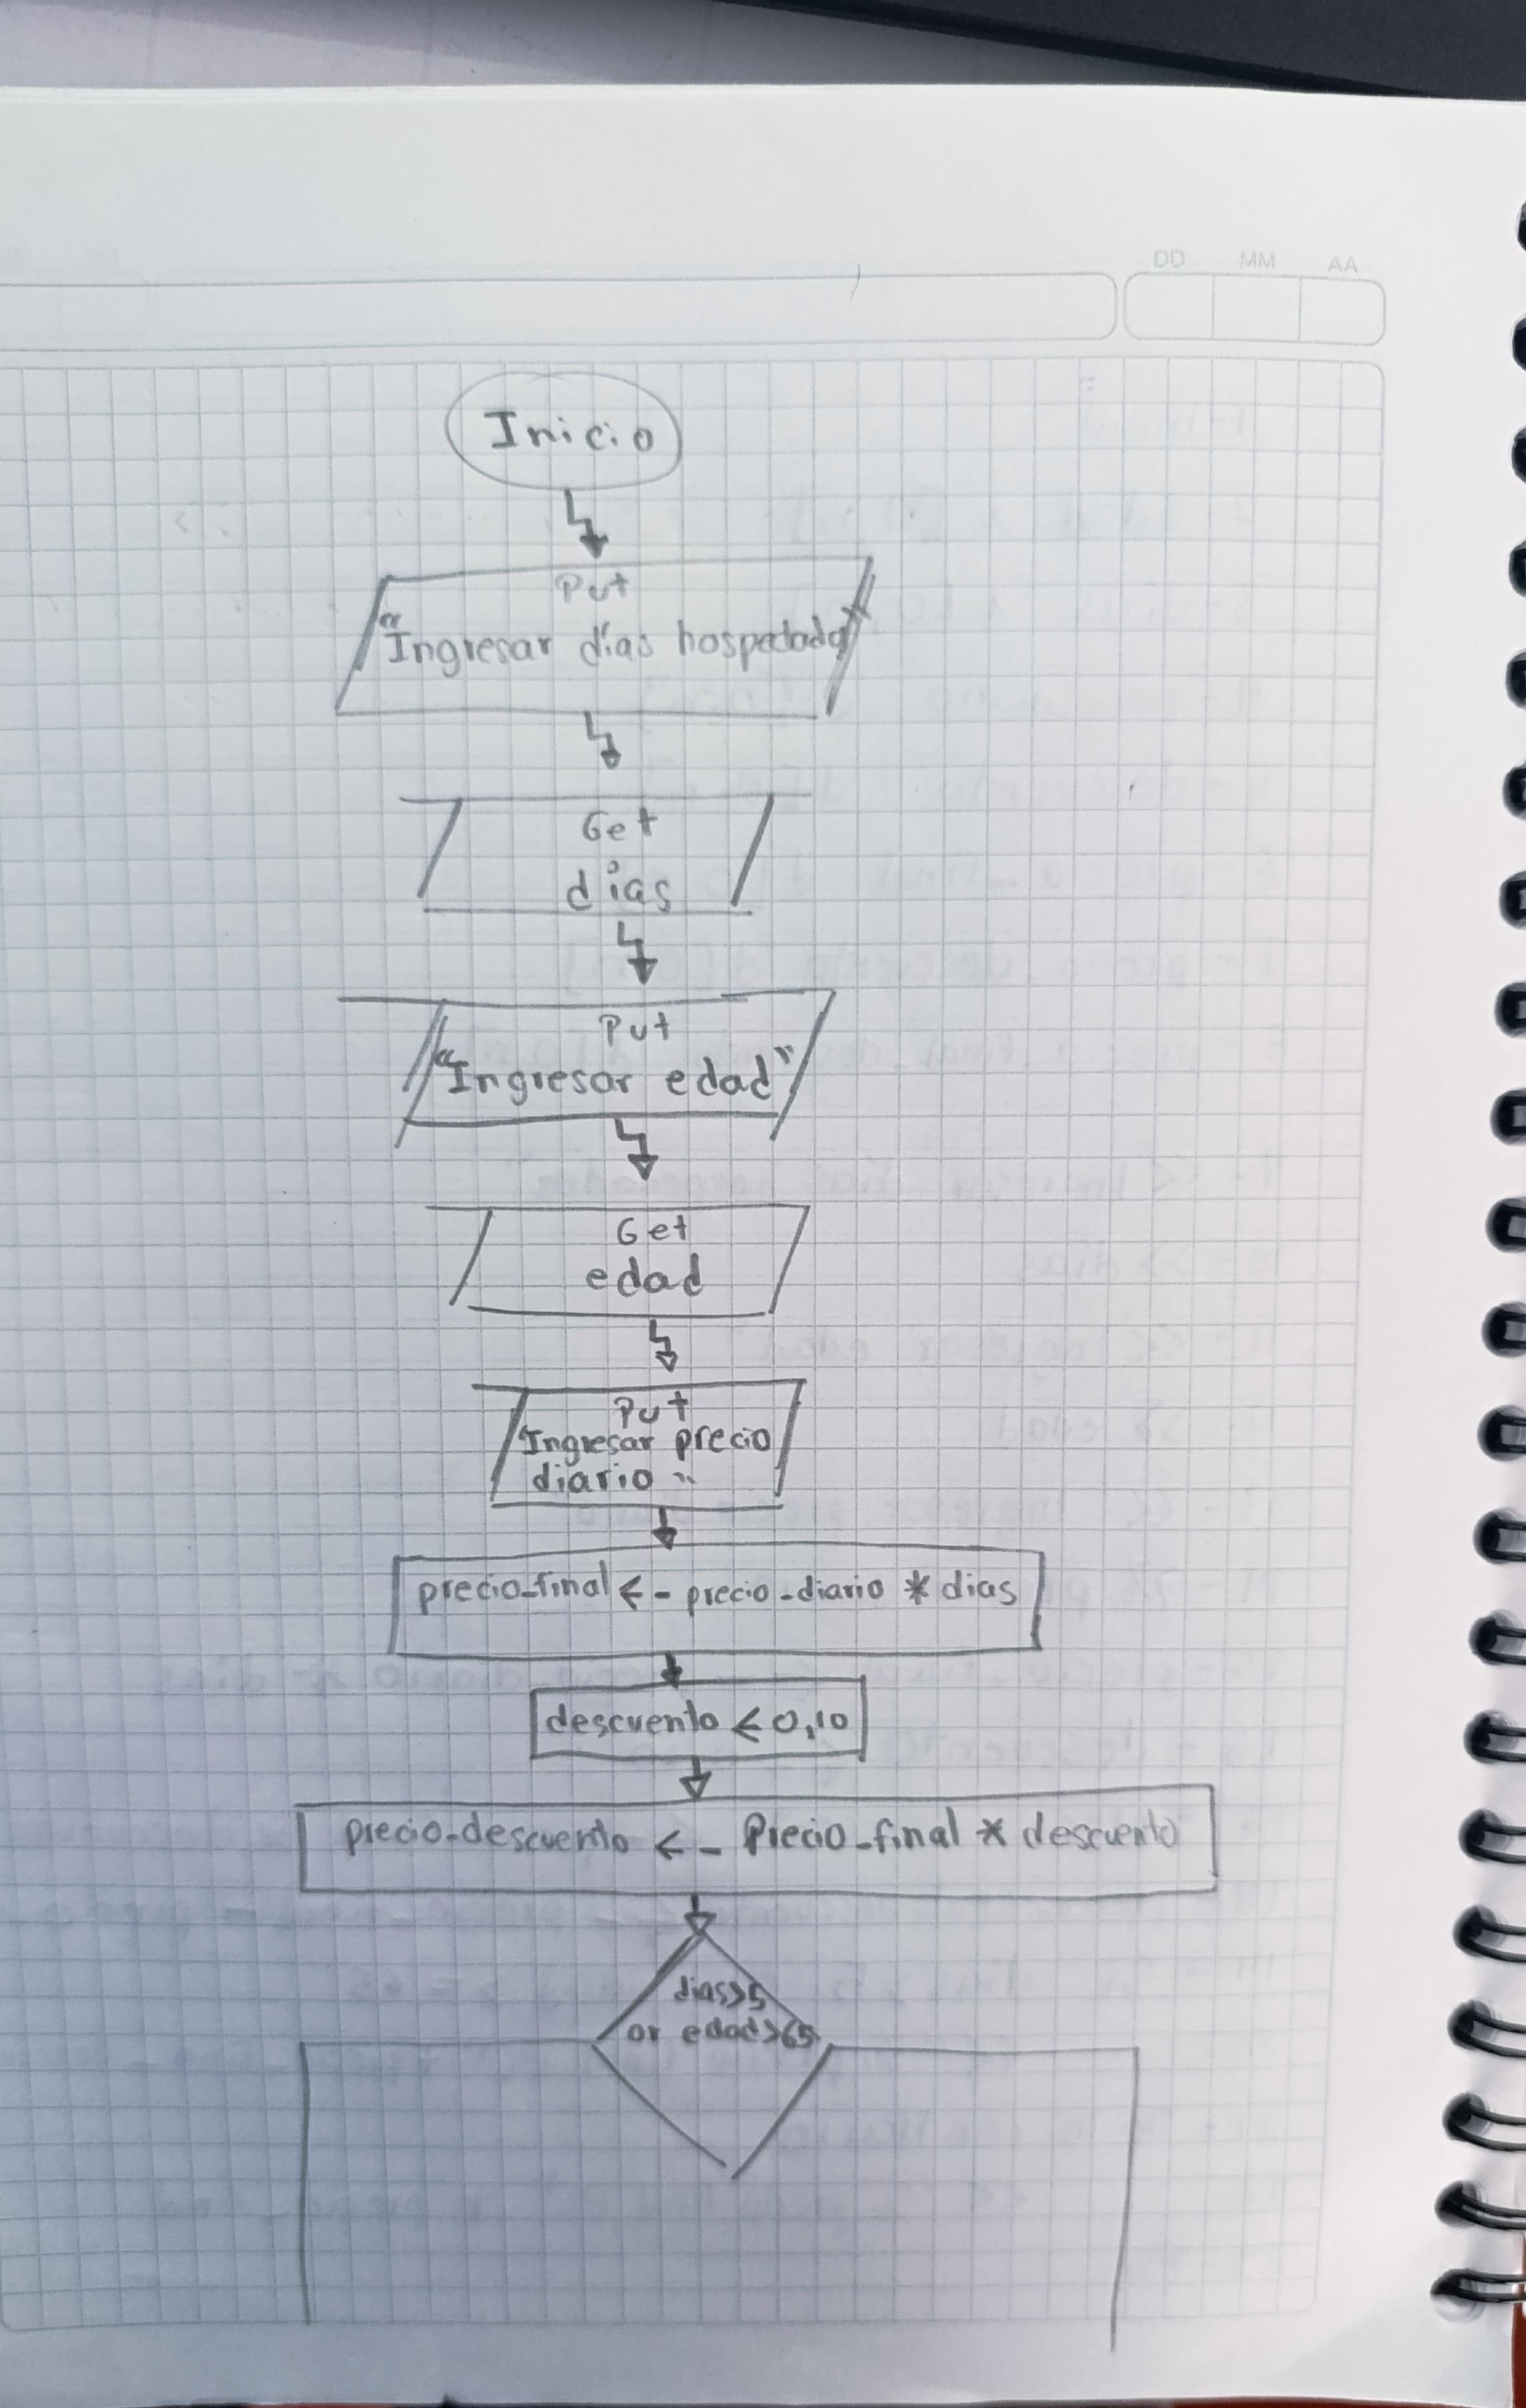 DD MM AA
Inicio
Put
"Ingresar días hospedado"
Get
dias
Put
"Ingresar edad"
Get
edad
Put
"Ingresar precio
diario"
precio_final <- precio_diario * dias
descuento < 0,10
precio_descuento <- Precio_final * descuento
dias>5
or edad>65